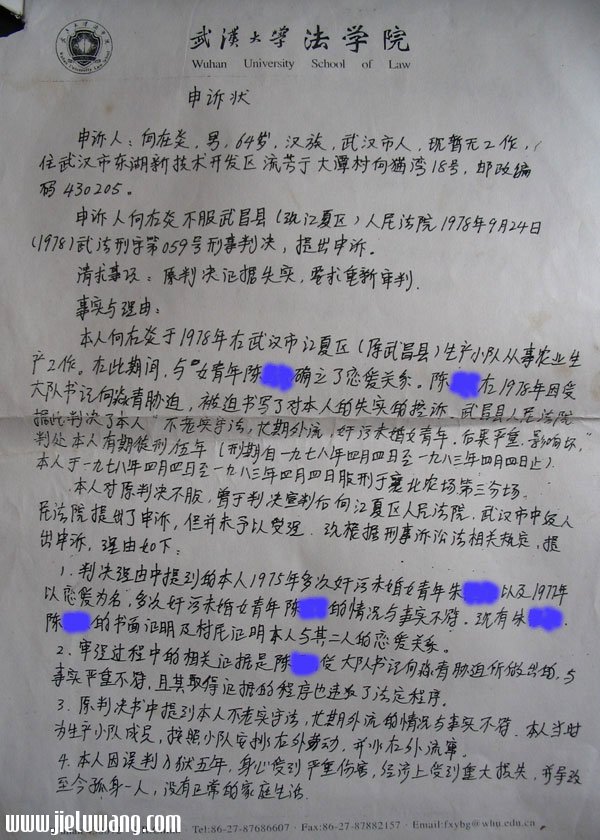 武汉大学法学院
Wuhan University School of Law
申诉状
申诉人：向在炎，男，64岁，汉族，武汉市人，现暂无工作，
住武汉市东湖新技术开发区流芳于大潭村向猫湾18号，邮政编
码430205。
申诉人向在炎不服武昌县（现江夏区）人民法院1978年9月24日
(1978)武法刑字第059号刑事判决，提出申诉。
请求事项：原判决证据失实，要求重新审判.
事实与理由：
本人向在炎于1978年在武汉市江夏区（原武昌县）生产小队从事农业生
产工作。在此期间，与女青年陈 确立了恋爱关系。陈 在1978年因受
大队书记向 青胁迫，被迫书写了对本人的失实的控诉。武昌县人民法院
据此判决了本人"不老实守法，长期外流，奸污未婚女青年，后果严重，影响坏，"
判处本人有期徒刑伍年（刑期自一九七八年四月四日至一九八三年四月四日止）.
本人于一九七八年四月四日至一九八三年四月四日服刑于襄北农场第三分场。
本人对原判决不服，曾于判决宣判后向江夏区人民法院、武汉市中级人
民法院提出了申诉，但并未予以受理. 现根据刑事诉讼法相关规定，提
出申诉，理由如下：
1. 判决理由中提到的本人1975年多次奸污未婚女青年朱 以及1977年
以恋爱为名，多次奸污未婚女青年陈 的情况与事实不符. 现有朱 .
陈 的书面证明及村民证明本人与其二人的恋爱关系。
2. 审理过程中的相关证据是陈 受大队书记向 青胁迫所做出的，与
事实严重不符，且其取得证据的程序也违反了法定程序。
3. 原判决书中提到本人不老实守法，长期外流的情况与事实不符. 本人当时
为生产小队成员，按照小队安排在外劳动，并非在外流窜。
4. 本人因误判入狱五年，身心受到严重伤害，经济上受到重大损失，并导致
至今孤身一人，没有正常的家庭生活.
www.jieluwang.com
Tel:86-27-87686607 · Fax:86-27-87882157 · Email:fxybg@whu.edu.cn